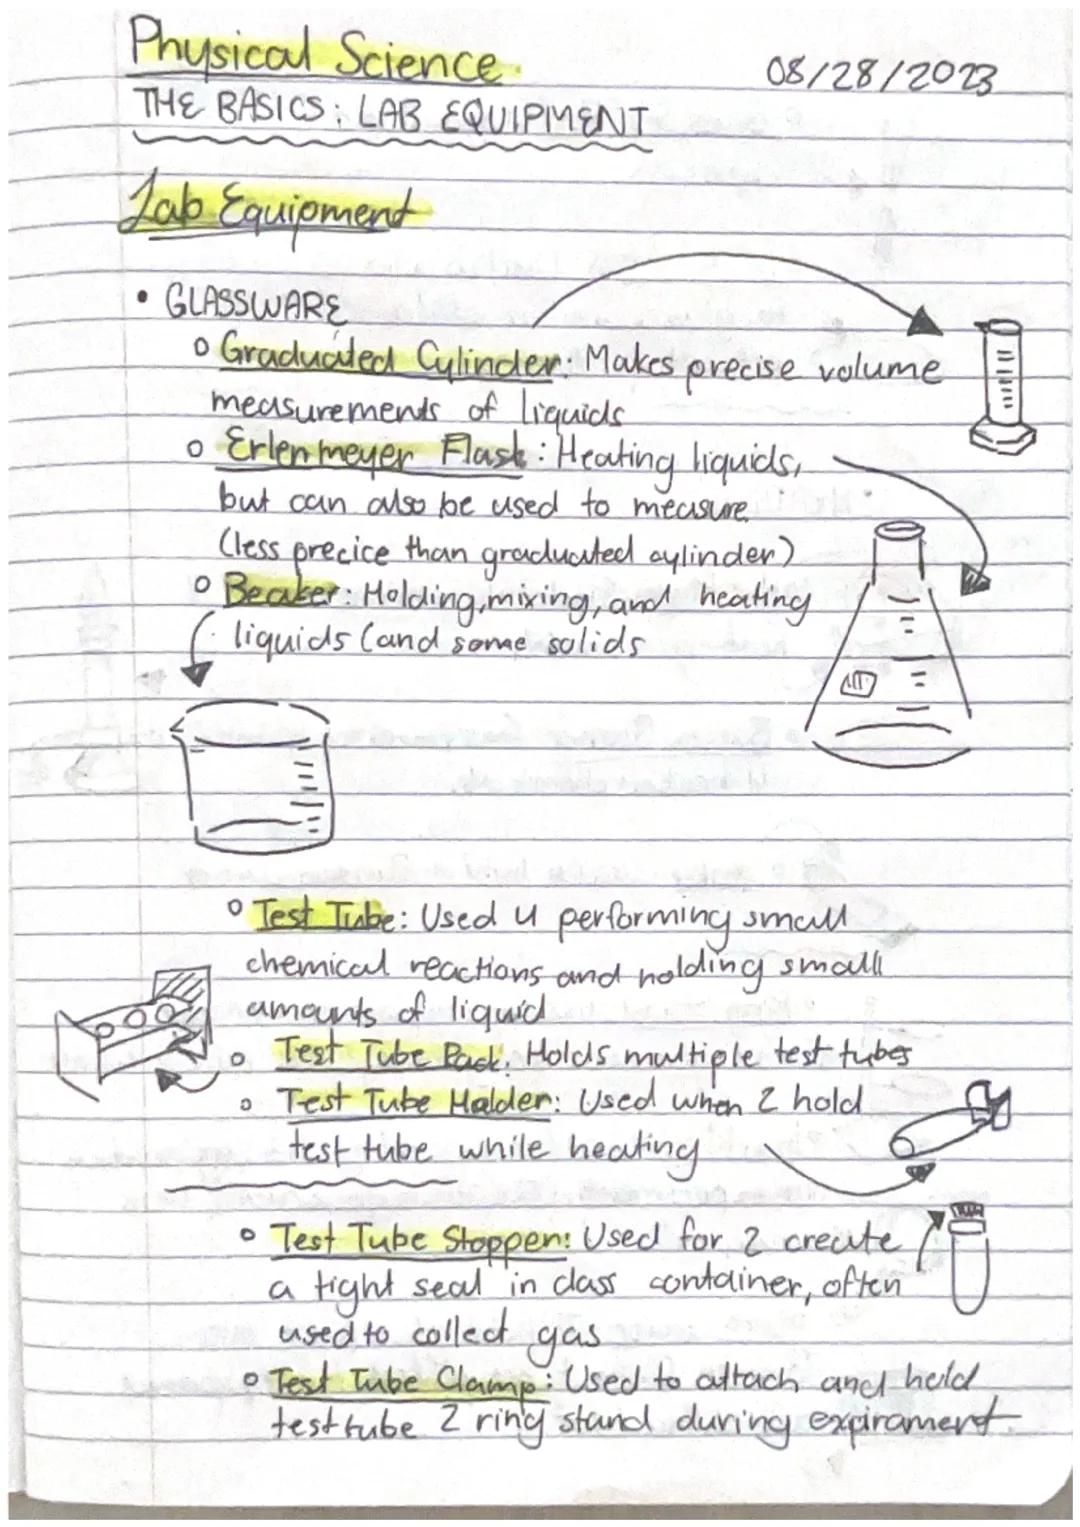 Physical Science
08/28/2023
THE BASICS: LAB EQUIPMENT
Lab Equipment
• GLASSWARE
o Graduated Cylinder: Makes precise volume
measurements of liquids
o Erlenmeyer Flask: Heating liquids,
but can also be used to measure
(less precice than graduated cylinder)
o Beaker: Holding, mixing, and heating
liquids (and some solids
o Test Tube: Used 4 performing small
chemical reactions and holding small
amounts of liquid
o Test Tube Rack: Holds multiple test tubes
o Test Tube Holder: Used when 2 hold
test tube while heating
o Test Tube Stopper: Used for 2 create
a tight seal in class container, often
used to collect gas
o Test Tube Clamp: Used to attach and hold
test tube 2 ring stand during expirament